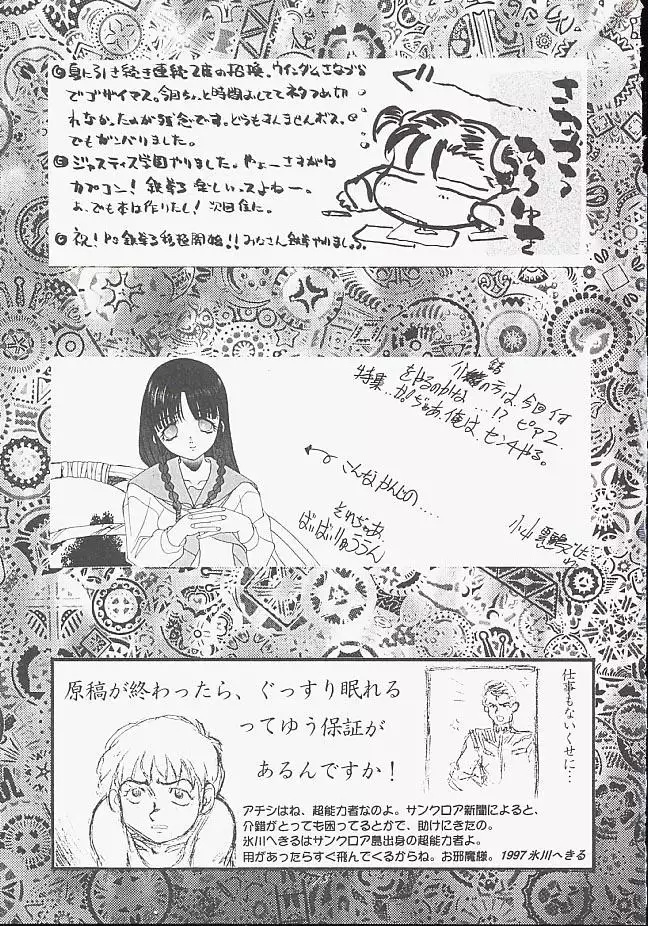 身に引き続き連続2度の招換、ウィンダムさながら
でゴザイマス。今回ちょと時間おしてて
れなかったのが残念です。どうもすんませんボス。
でもガンバりました。
ジャスティス学園やりました。やょーさすがは
カプコン! 鉄拳3 楽しいっスよねー。
あ、でも本は作りたし! 次回作に。
祝! PS 鉄拳3移植開始!! みなさん鉄拳やりましょ
さながる
ひろゆき
の方は、今回何
特集
をやるのかな…!? ピアス…
か。ぢゃあ、俺は、センチやる。
こんなかんじの…
それぢゃあ、
ばいばいりゅううん
原稿が終わったら、ぐっすり眠れる
ってゆう保証が
あるんですか!
仕事もないくせに…
アチシはね、超能力者なのよ。サンクロア新聞によると、
介錯がとっても困ってるとかで、助けにきたの。
氷川へきるはサンクロア島出身の超能力者よ。
用があったらすぐ飛んでくるからね。お邪魔様。1997 氷川へきる